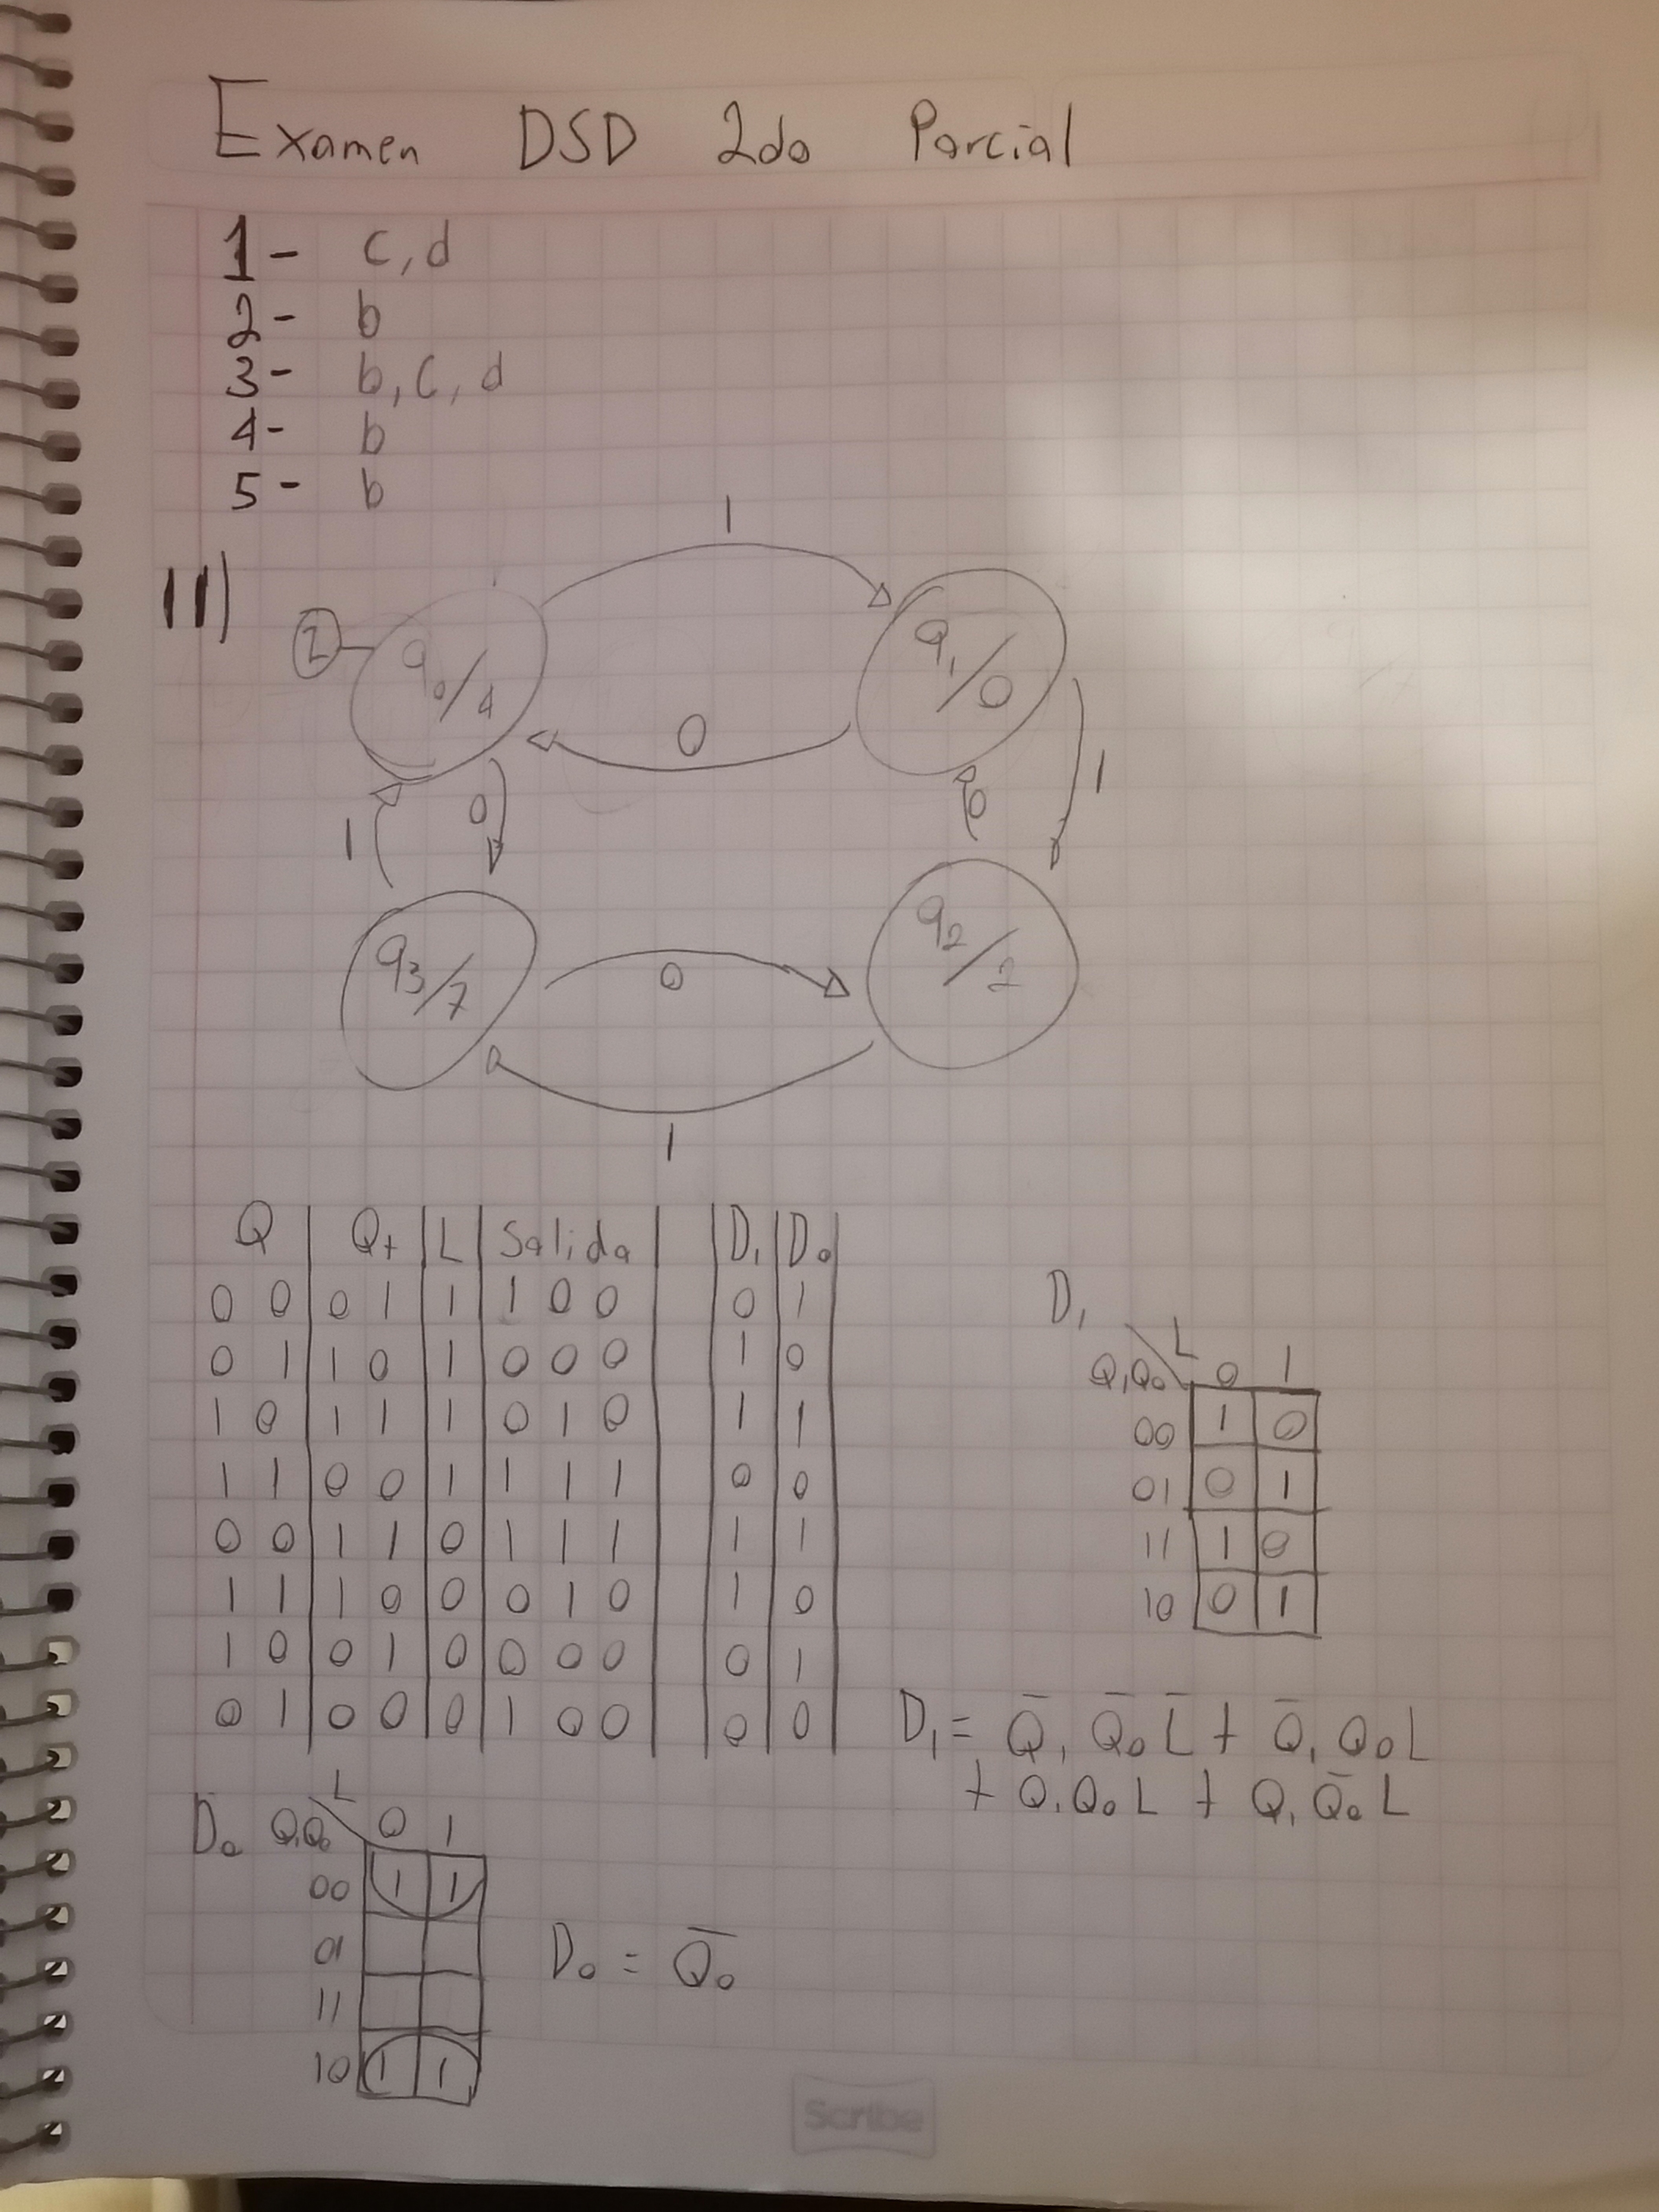 Examen DSD 2do Parcial
1- c, d
2- b
3- b, c, d
4- b
5- b
II)
1
2 q0/4 Q1/0
0
1 0 0 1
q3/7 0 q2/2
1
Q Q+ L Salida D1 D0
0 0 0 1 1 1 0 0 0 1
0 1 1 0 1 0 0 0 1 0
1 0 1 1 1 0 1 0 1 1
1 1 0 0 1 1 1 1 0 0
0 0 1 1 0 1 1 1 1 1
1 1 1 0 0 0 1 0 1 0
1 0 0 1 0 0 0 0 0 1
0 1 0 0 0 1 0 0 0 0
D1 L
Q1Q0 0 1
00 1 0
01 0 1
11 1 0
10 0 1
D1 = Q̅1 Q̅0 L̅ + Q̅1 Q0 L
+ Q1 Q0 L + Q1 Q̅0 L
D0 L
Q1Q0 0 1
00 1 1
01
11
10 1 1
D0 = Q̅0
Scribe